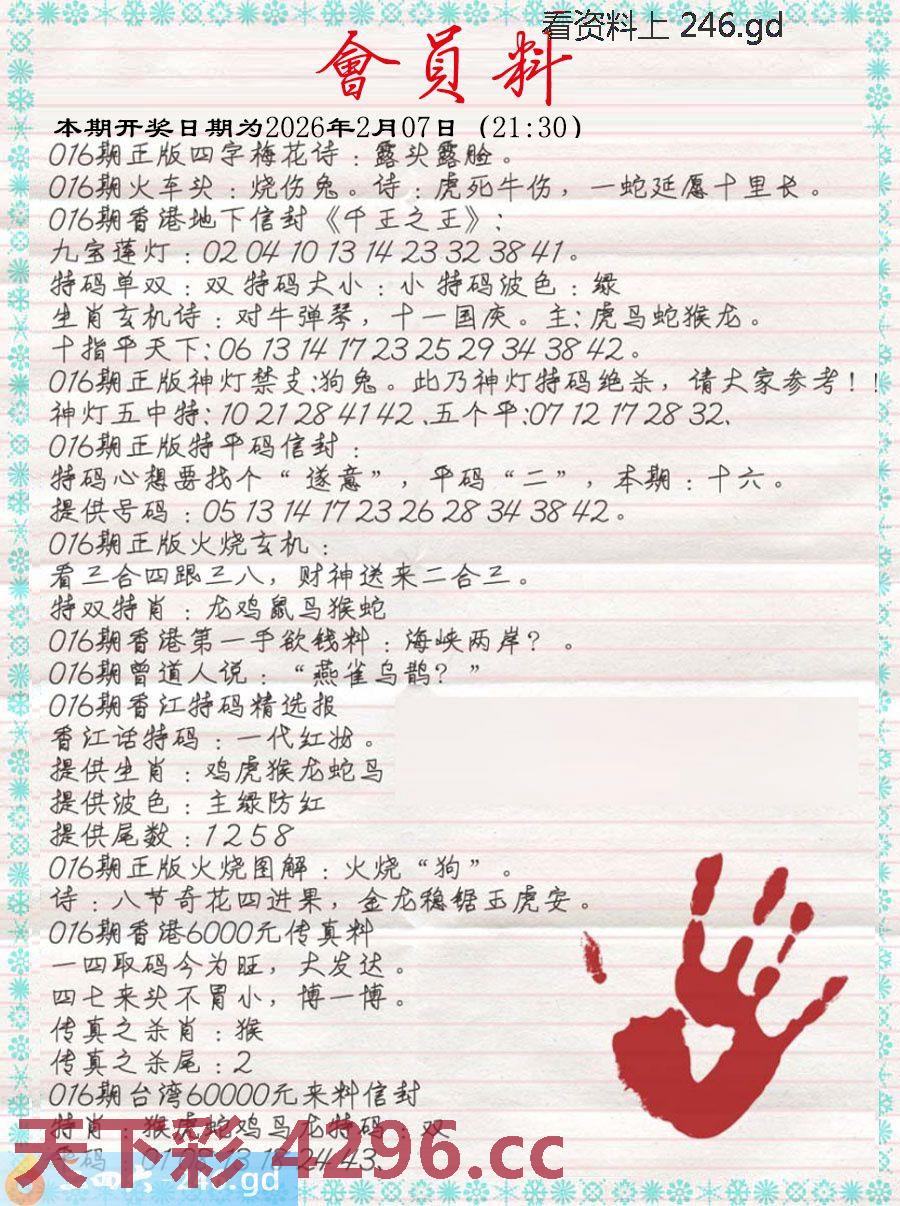 看资料上 246.gd
會員料
本期开奖日期为2026年2月07日（21:30）
016期正版四字梅花诗：露头露脸。
016期火车头：烧伤兔。诗：虎死牛伤，一蛇延愿十里长。
016期香港地下信封《千王之王》：
九宝莲灯：02 04 10 13 14 23 32 38 41。
特码单双：双 特码大小：小 特码波色：绿
生肖玄机诗：对牛弹琴，十一国庆。主：虎鸟蛇猴龙。
十指平天下：06 13 14 17 23 25 29 34 38 42。
016期正版神灯禁支：狗兔。此乃神灯特码绝杀，请大家参考！！
神灯五中特：10 21 28 41 42、五个平：07 12 17 28 32、
016期正版特平码信封：
特码心想要找个“遂意”，平码“二”，本期：十六。
提供号码：05 13 14 17 23 26 28 34 38 42。
016期正版火烧玄机：
看三合四跟三八，财神送来二合三。
特双特肖：龙鸡鼠马猴蛇
016期香港第一手欲钱料：海峡两岸？。
016期曾道人说：“燕雀乌鹊？”
016期香江特码精选报
香江话特码：一代红妆。
提供生肖：鸡虎猴龙蛇马
提供波色：主绿防红
提供尾数：1 2 5 8
016期正版火烧图解：火烧“狗”。
诗：八节奇花四进果，金龙稳锯玉虎安。
016期香港6000元传真料
一四取码今为旺，大发达。
四七来头不冒小，博一博。
传真之杀肖：猴
传真之杀尾：2
016期台湾60000元来料信封
特肖：猴虎蛇鸡马龙特码：双
天下彩 4296.cc
246.gd